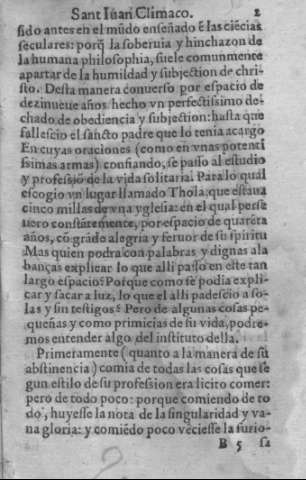 Sant Iuan Climaco. 2
sido antes en el mũdo enseñado ẽ las ciẽcias
seculares: porq̃ la soberuia y hinchazon de
la humana philosophia, suele comunmente
apartar de la humildad y subjection de chri-
sto. Desta manera conuerso por espacio de
dezinueue años hecho vn perfectissimo de-
chado de obediencia y subjection: hasta que
fallescio el sancto padre que lo tenia a cargo
En cuyas oraciones (como en vnas potenti
ssimas armas) confiando, se passo al estudio
y professiõ de la vida solitaria. Para lo qual
escogio vn lugar llamado Thola: que estaua
cinco millas de vna yglesia: en el qual perse
uero constãtemente, por espacio de quarẽta
años, cõ grãde alegria y feruor de su spiritu
Mas quien podra con palabras y dignas ala
banças explicar lo que alli passo en este tan
largo espacio? Porque como se podia expli-
car y sacar a luz, lo que el alli padescio a so-
las y sin testigos? Pero de algunas cosas pe-
queñas y como primicias de su vida, podre-
mos entender algo del instituto della.
Primeramente (quanto a la manera de su
abstinencia) comia de todas las cosas que se
gun estilo de su profession era licito comer:
pero de todo poco: porque comiendo de to
do, huyesse la nota de la singularidad y va-
na gloria: y comiẽdo poco vẽciesse la furio-
B 5 sa